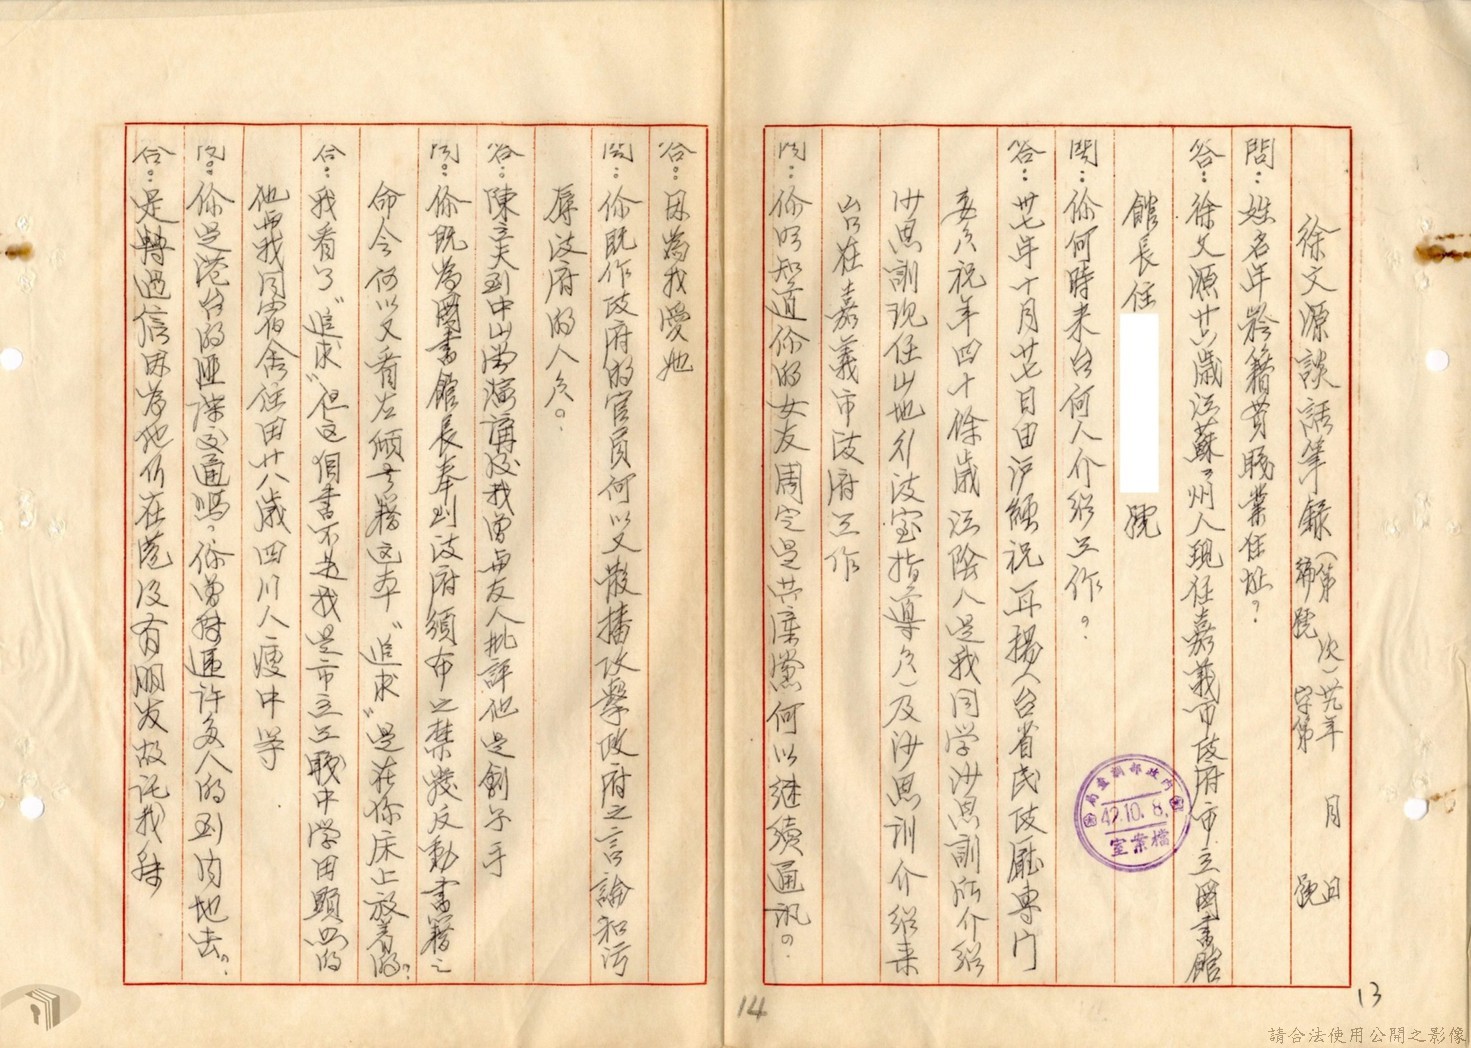 徐文源談話筆錄（第　次）卅九年　月　日
字第　號
問：姓名年齡籍貫職業住址？
答：徐文源廿六歲江蘇蘇州人現任嘉義市政府市立圖書館
館長住　號
問：你何時来台何人介紹工作。？
答：卅七年十月廿七日由沪經祝耳揚（台省民政廳專門
委员祝年四十餘歲江陰人是我同学沙思訓所介紹
沙思訓現任山地行政室指導员）及沙思訓介紹来
台在嘉義市政府工作
問：你明知道你的女友周定是共產黨何以继續通訊。？
答：因為我愛她
問：你既作政府的官員何以又散播攻擊政府之言論和污
辱政府的人员。？
答：陳立夫到中山堂演講後我曾與友人批評他是劊子手
問：你既為圖書館長奉到政府頒布之禁發反動書籍之
命令何以又看左傾書籍这本“追求”是在你床上放着的。？
答：我看了“追求”但这個書不是我是市立工職中学田顯 的
他與我同宿舍住田廿八歲四川人瘦中等
問：你是港台的匪諜交通嗎。？你曾轉遞許多人的到内地去。？
答：是轉過信因為他们在港没有朋友故託我轉
內政部調查局
42.10.8.
檔案室
13
14
請合法使用公開之影像